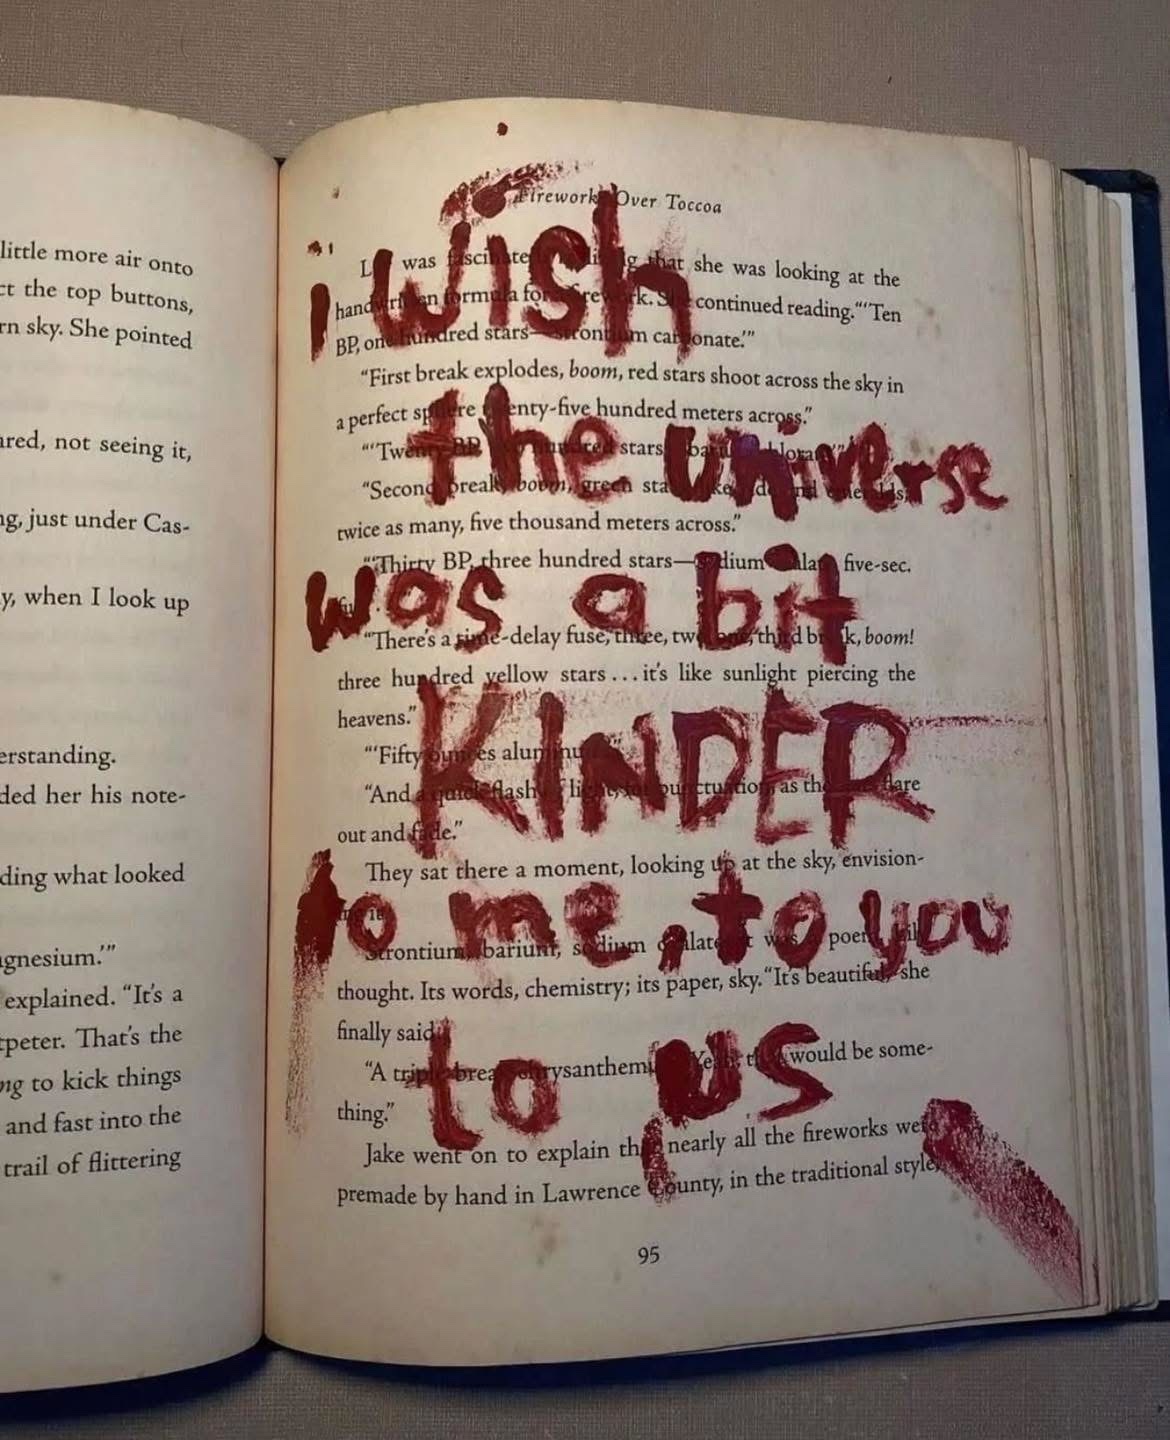 little more air onto
ct the top buttons,
rn sky. She pointed
ared, not seeing it,
ng, just under Cas-
y, when I look up
erstanding.
ded her his note-
ding what looked
gnesium.'”
explained. “It's a
tpeter. That's the
ng to kick things
and fast into the
trail of flittering
Fireworks Over Toccoa
was that she was looking at the
handwritten formula for continued reading. “‘Ten
BP, one hundred stars—strontium carbonate.’”
“First break explodes, boom, red stars shoot across the sky in
a perfect sphere twenty-five hundred meters across.”
“‘Twenty BP, hundred stars
“Second break, boom, green
twice as many, five thousand meters across.”
“‘Thirty BP, three hundred stars—sodium five-sec.
“There's a time-delay fuse, three, two, one, third break, boom!
three hundred yellow stars . . . it's like sunlight piercing the
heavens.”
“‘Fifty ounces aluminum
“And a quick flash of light, for punctuation, as the flare
out and fade.”
They sat there a moment, looking up at the sky, envision-
ing it.
Strontium, barium, sodium was thought. Its words, chemistry; its paper, sky. “It's beautiful,” she
finally said.
“A triple-break chrysanthemum. Yeah, that would be some-
thing.”
Jake went on to explain that nearly all the fireworks were
premade by hand in Lawrence County, in the traditional style,
95
i wish
the universe
was a bit
KINDER
to me, to you
to us